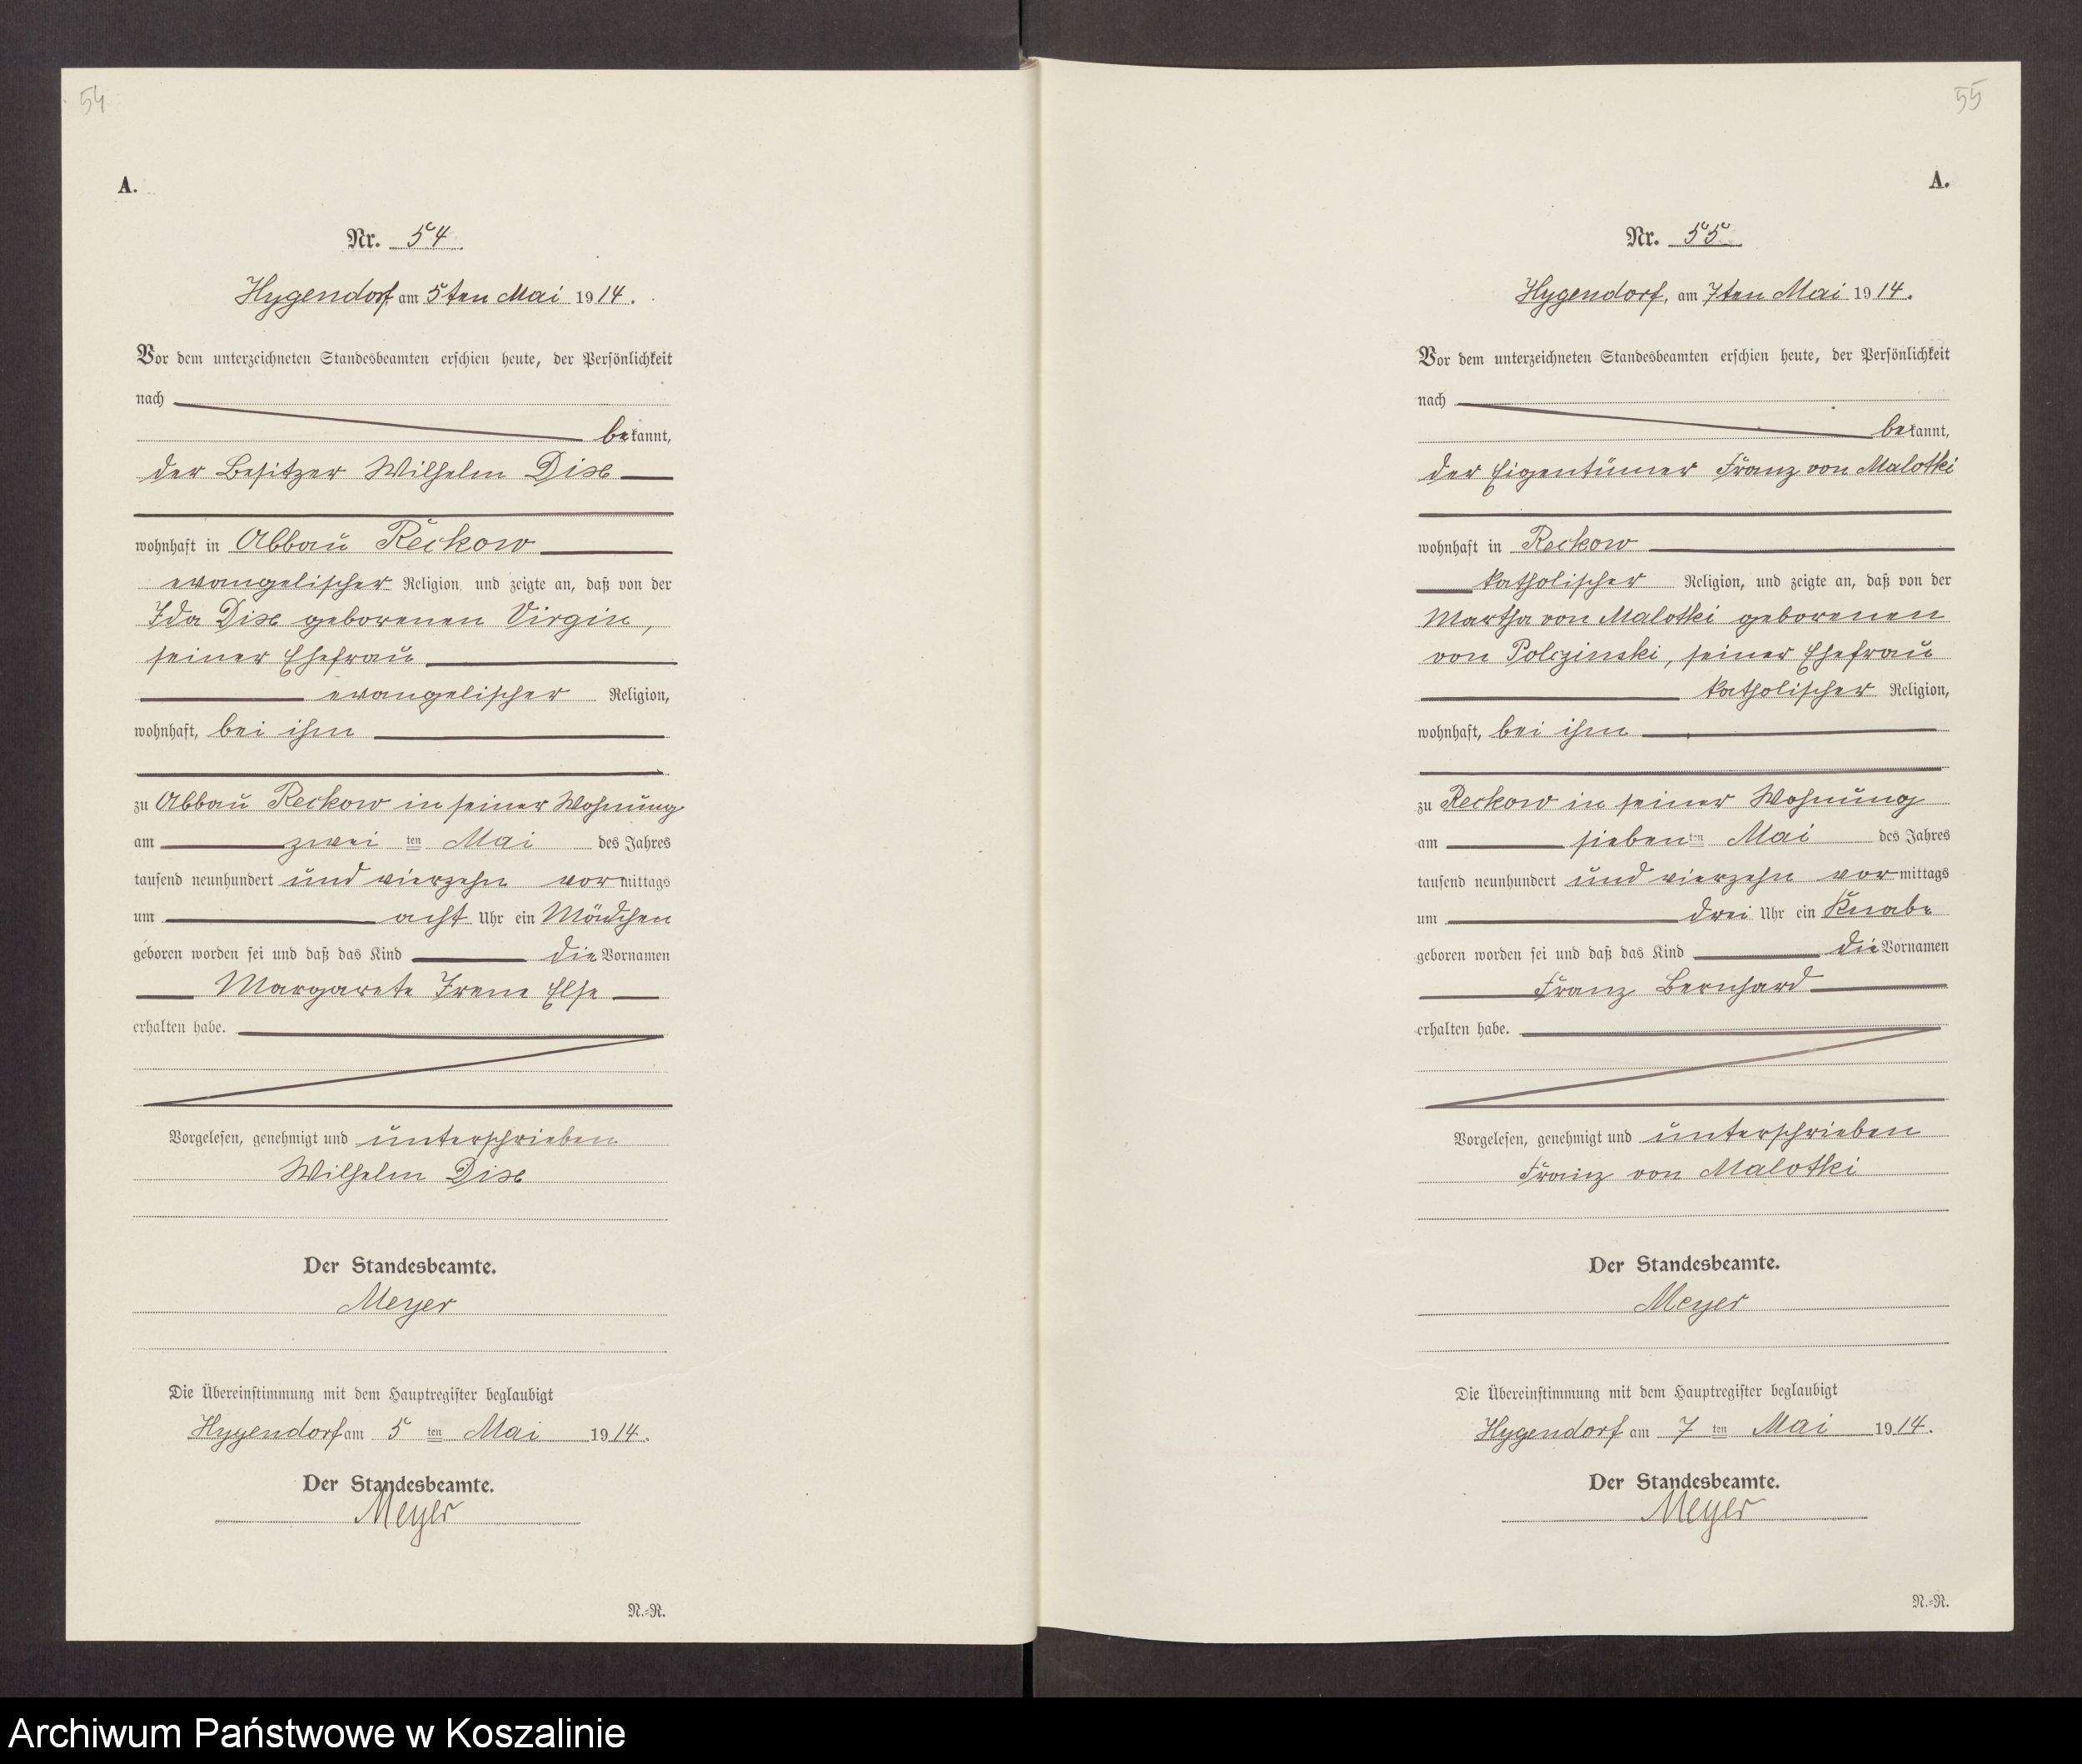 54
A.
Nr. 54
Hygendorf am 5ten Mai 1914.
Vor dem unterzeichneten Standesbeamten erschien heute, der Persönlichkeit
nach
bekannt,
der Besitzer Wilhelm Dix
wohnhaft in Abbau Reckow
evangelischer Religion, und zeigte an, daß von der
Ida Dix geborenen Virgin,
seiner Ehefrau
evangelischer Religion,
wohnhaft, bei ihm
zu Abbau Reckow in seiner Wohnung
am zwei ten Mai des Jahres
tausend neunhundert und vierzehn vormittags
um acht Uhr ein Mädchen
geboren worden sei und daß das Kind die Vornamen
Margarete Irene Else
erhalten habe.
Vorgelesen, genehmigt und unterschrieben
Wilhelm Dix
Der Standesbeamte.
Meyer
Die Übereinstimmung mit dem Hauptregister beglaubigt
Hygendorf am 5 ten Mai 1914.
Der Standesbeamte.
Meyer
N.-R.
55
A.
Nr. 55
Hygendorf, am 7ten Mai 1914.
Vor dem unterzeichneten Standesbeamten erschien heute, der Persönlichkeit
nach
bekannt,
der Eigentümer Franz von Malotki
wohnhaft in Reckow
katholischer Religion, und zeigte an, daß von der
Martha von Malotki geborenen
von Polczinski, seiner Ehefrau
katholischer Religion,
wohnhaft, bei ihm
zu Reckow in seiner Wohnung
am sieben ten Mai des Jahres
tausend neunhundert und vierzehn vormittags
um drei Uhr ein Knabe
geboren worden sei und daß das Kind die Vornamen
Franz Bernhard
erhalten habe.
Vorgelesen, genehmigt und unterschrieben
Franz von Malotki
Der Standesbeamte.
Meyer
Die Übereinstimmung mit dem Hauptregister beglaubigt
Hygendorf am 7 ten Mai 1914.
Der Standesbeamte.
Meyer
N.-R.
Archiwum Państwowe w Koszalinie